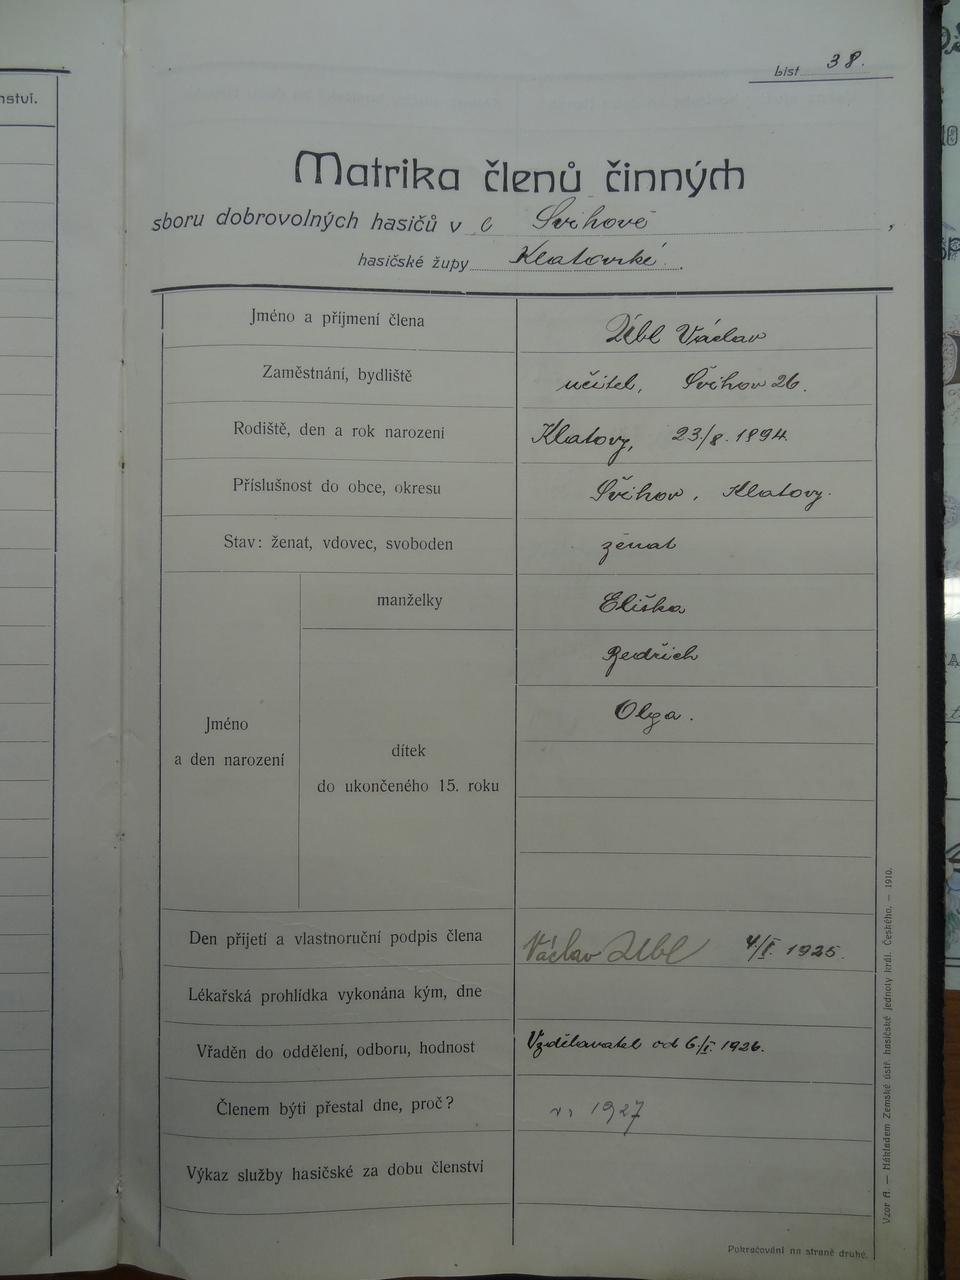 nství.
List 38.
Matrika členů činných
sboru dobrovolných hasičů v Švihově,
hasičské župy Klatovské.
Jméno a příjmení člena Úbl Václav
Zaměstnání, bydliště učitel, Švihov 26.
Rodiště, den a rok narození Klatovy, 23./8. 1894.
Příslušnost do obce, okresu Švihov, Klatovy.
Stav: ženat, vdovec, svoboden ženat
manželky Eliška
Bedřich
Olga.
Jméno
a den narození
dítek
do ukončeného 15. roku
Den přijetí a vlastnoruční podpis člena Václav Úbl 4/I. 1925.
Lékařská prohlídka vykonána kým, dne
Vřaděn do oddělení, odboru, hodnost Vzdělavatel od 6/I. 1926.
Členem býti přestal dne, proč? r. 1927
Výkaz služby hasičské za dobu členství
Pokračování na straně druhé.
Vzor A. — Nákladem Zemské ústř. hasičské jednoty král. Českého. — 1910.